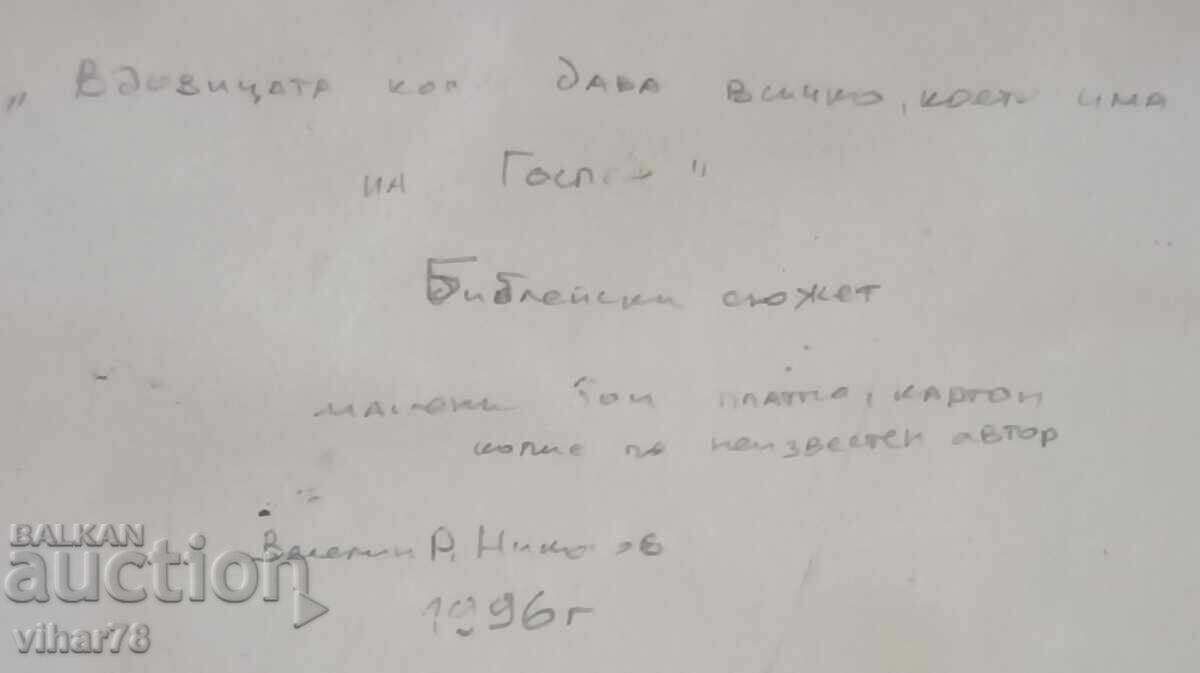 „Вдовицата коя дава всичко, което има
на Господ"
Библейски сюжет
маслени бои платно, картон
копие по неизвестен автор
Валентин Р. Николов
1996г
BALKAN
auction
vihar78